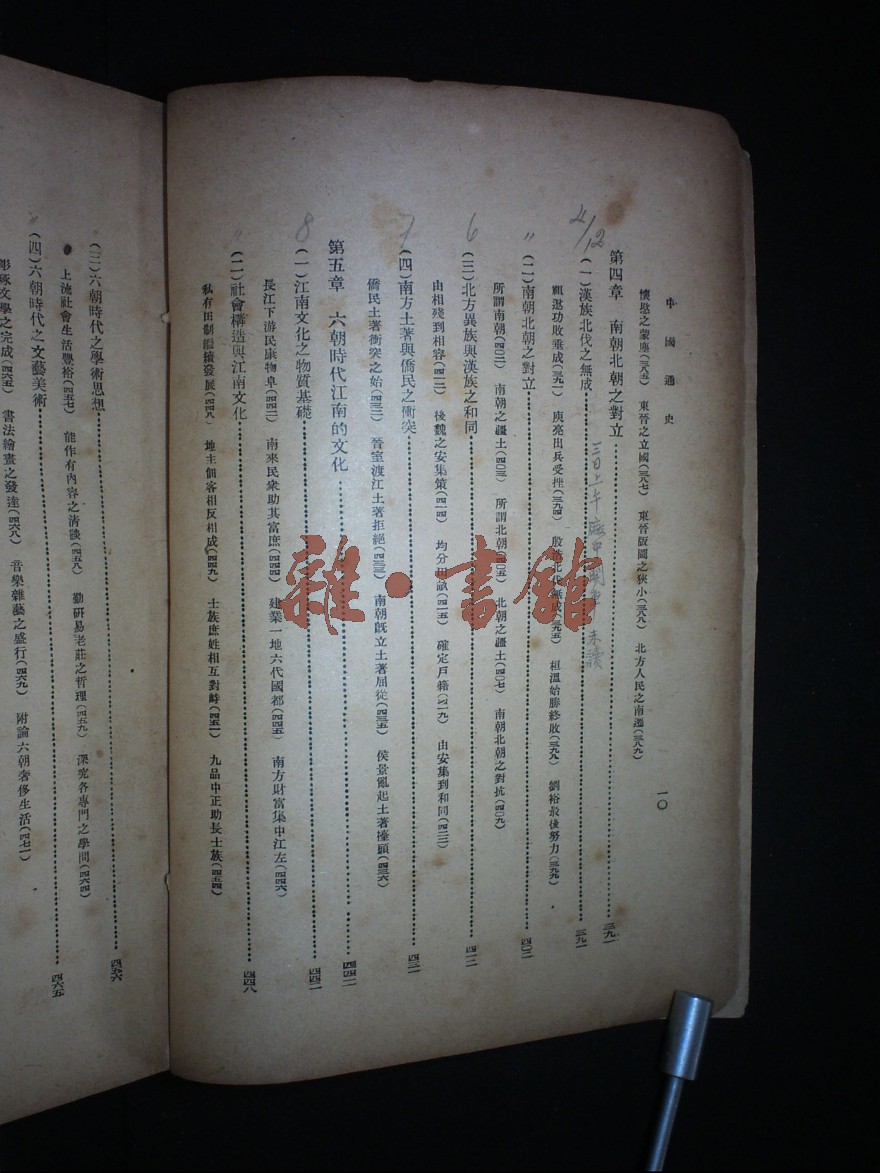 中國通史
一〇
懷愍之蒙塵(三八五) 東晉之立國(三八七) 東晉版圖之狹小(三八八) 北方人民之南遷(三八九)
第四章 南朝北朝之對立……三九一
三日上午 未讀
4/12
(一)漢族北伐之無成……三九一
祖逖功敗垂成(三九一) 庾亮出兵受挫(三九四) 殷浩北伐無成(三九五) 桓溫始勝終敗(三九九) 劉裕最後努力(三九九)
〃
(二)南朝北朝之對立……四〇三
所謂南朝(四〇三) 南朝之疆土(四〇三) 所謂北朝(四〇五) 北朝之疆土(四〇七) 南朝北朝之對抗(四〇九)
6
(三)北方異族與漢族之和同……四一二
由相殘到相容(四一二) 後魏之安集策(四一四) 均分田畝(四一五) 確定戶籍(四一九) 由安集到和同(四二二)
7
(四)南方土著與僑民之衝突……四三一
僑民土著衝突之始(四三一) 晉室渡江土著拒絕(四三三) 南朝既立土著屈從(四三五) 侯景亂起土著擡頭(四三六)
第五章 六朝時代江南的文化……四四二
8
(一)江南文化之物質基礎……四四二
長江下游民康物阜(四四二) 南來民衆助其富庶(四四四) 建業一地六代國都(四四五) 南方財富集中江左(四四六)
〃
(二)社會構造與江南文化……四四八
私有田制繼續發展(四四八) 地主佃客相反相成(四四九) 士族庶姓相互對峙(四五一) 九品中正助長士族(四五四)
(三)六朝時代之學術思想……四五六
上流社會生活豐裕(四五七) 能作有內容之清談(四五八) 勤研易老莊之哲理(四五九) 深究各專門之學問(四六四)
〃
(四)六朝時代之文藝美術……四六五
彫琢文學之完成(四六五) 書法繪畫之發達(四六八) 音樂雜藝之盛行(四六九) 附論六朝奢侈生活(四七一)
雜·書館